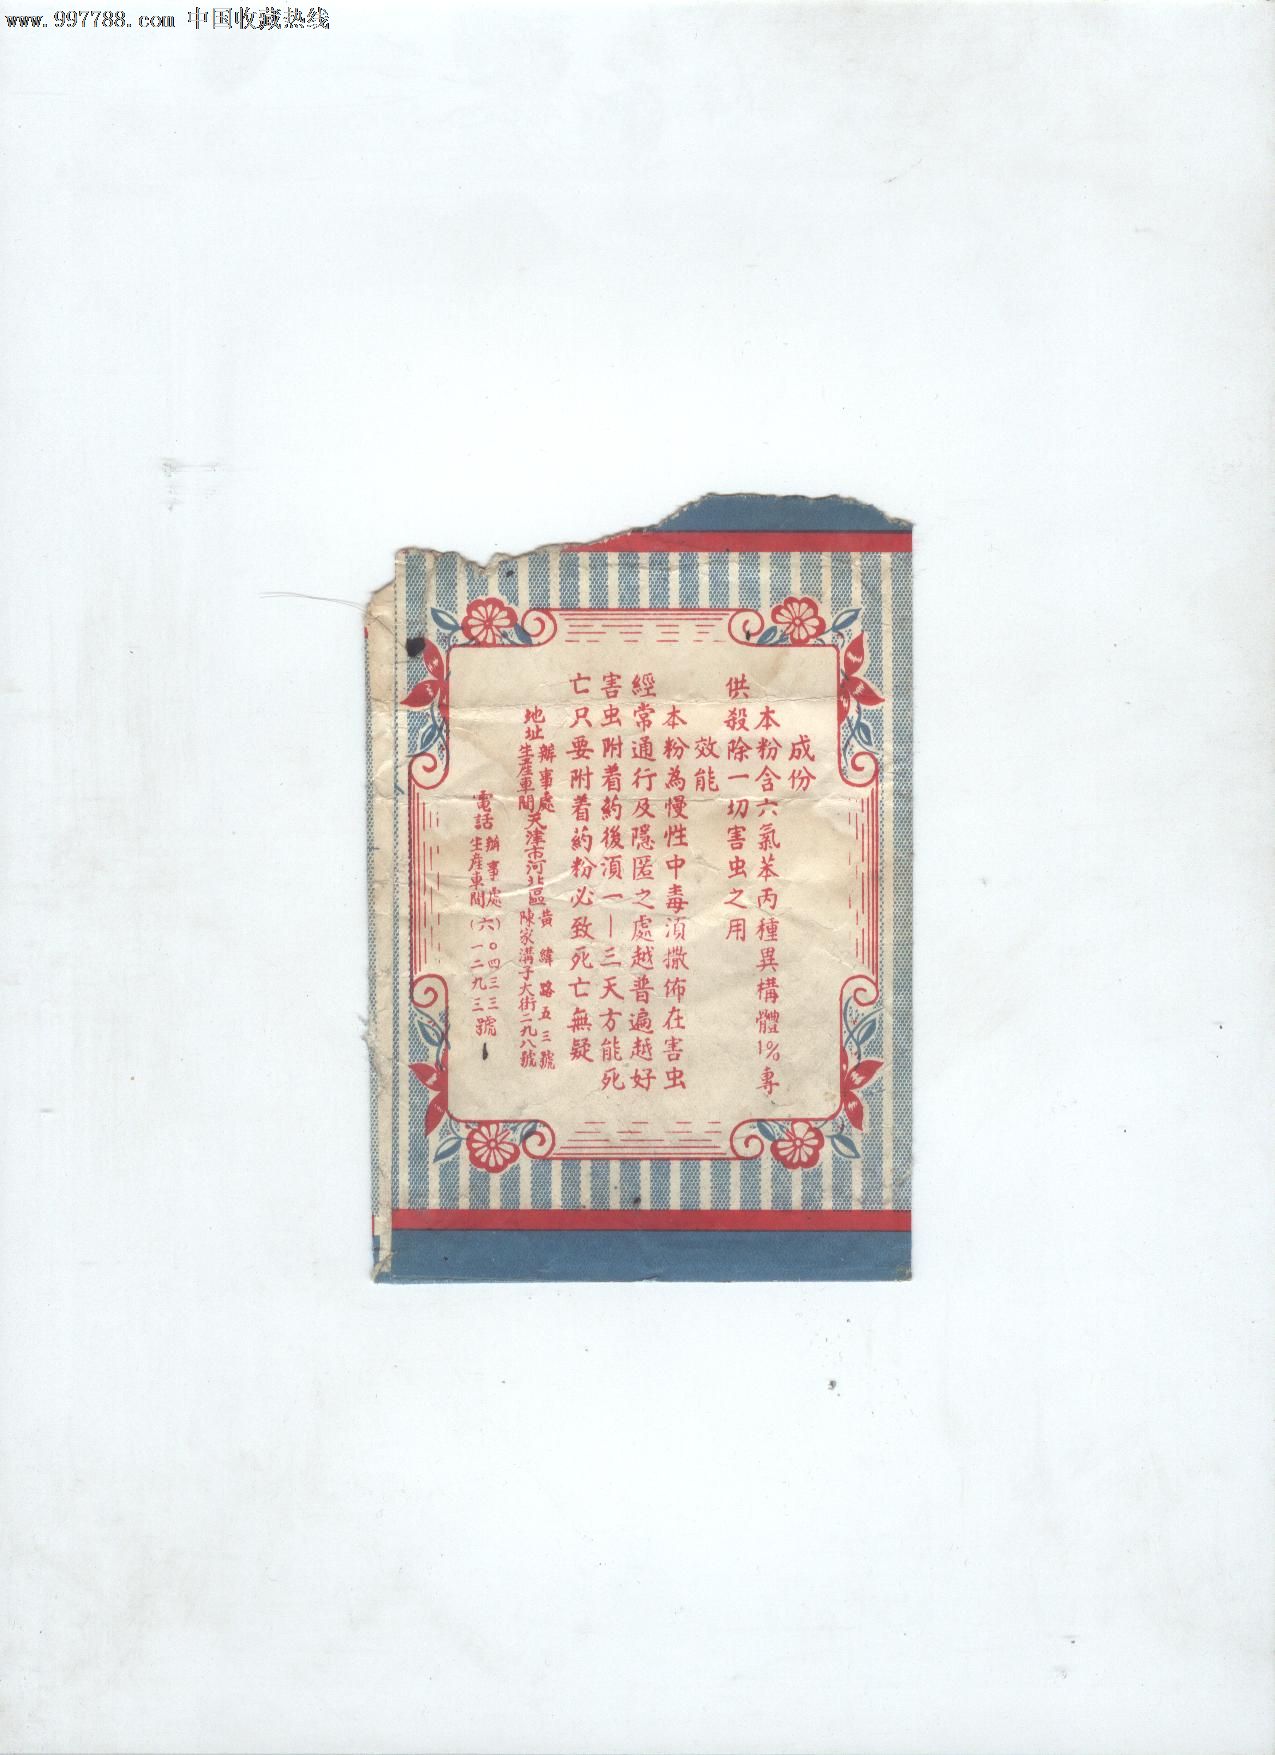 www.997788.com 中国收藏热线
成份
本粉含六氯苯丙種異構體1%專
供殺除一切害虫之用
效能
本粉為慢性中毒須撒佈在害虫
經常通行及隱匿之處越普遍越好
害虫附着药後須一—三天方能死
亡只要附着药粉必致死亡無疑
地址 辦事處 天津市河北區 黃緯路五三號
生產車間 陳家溝子大街二九八號
電話 辦事處 (六)〇四三三號
生產車間 (一二九三)